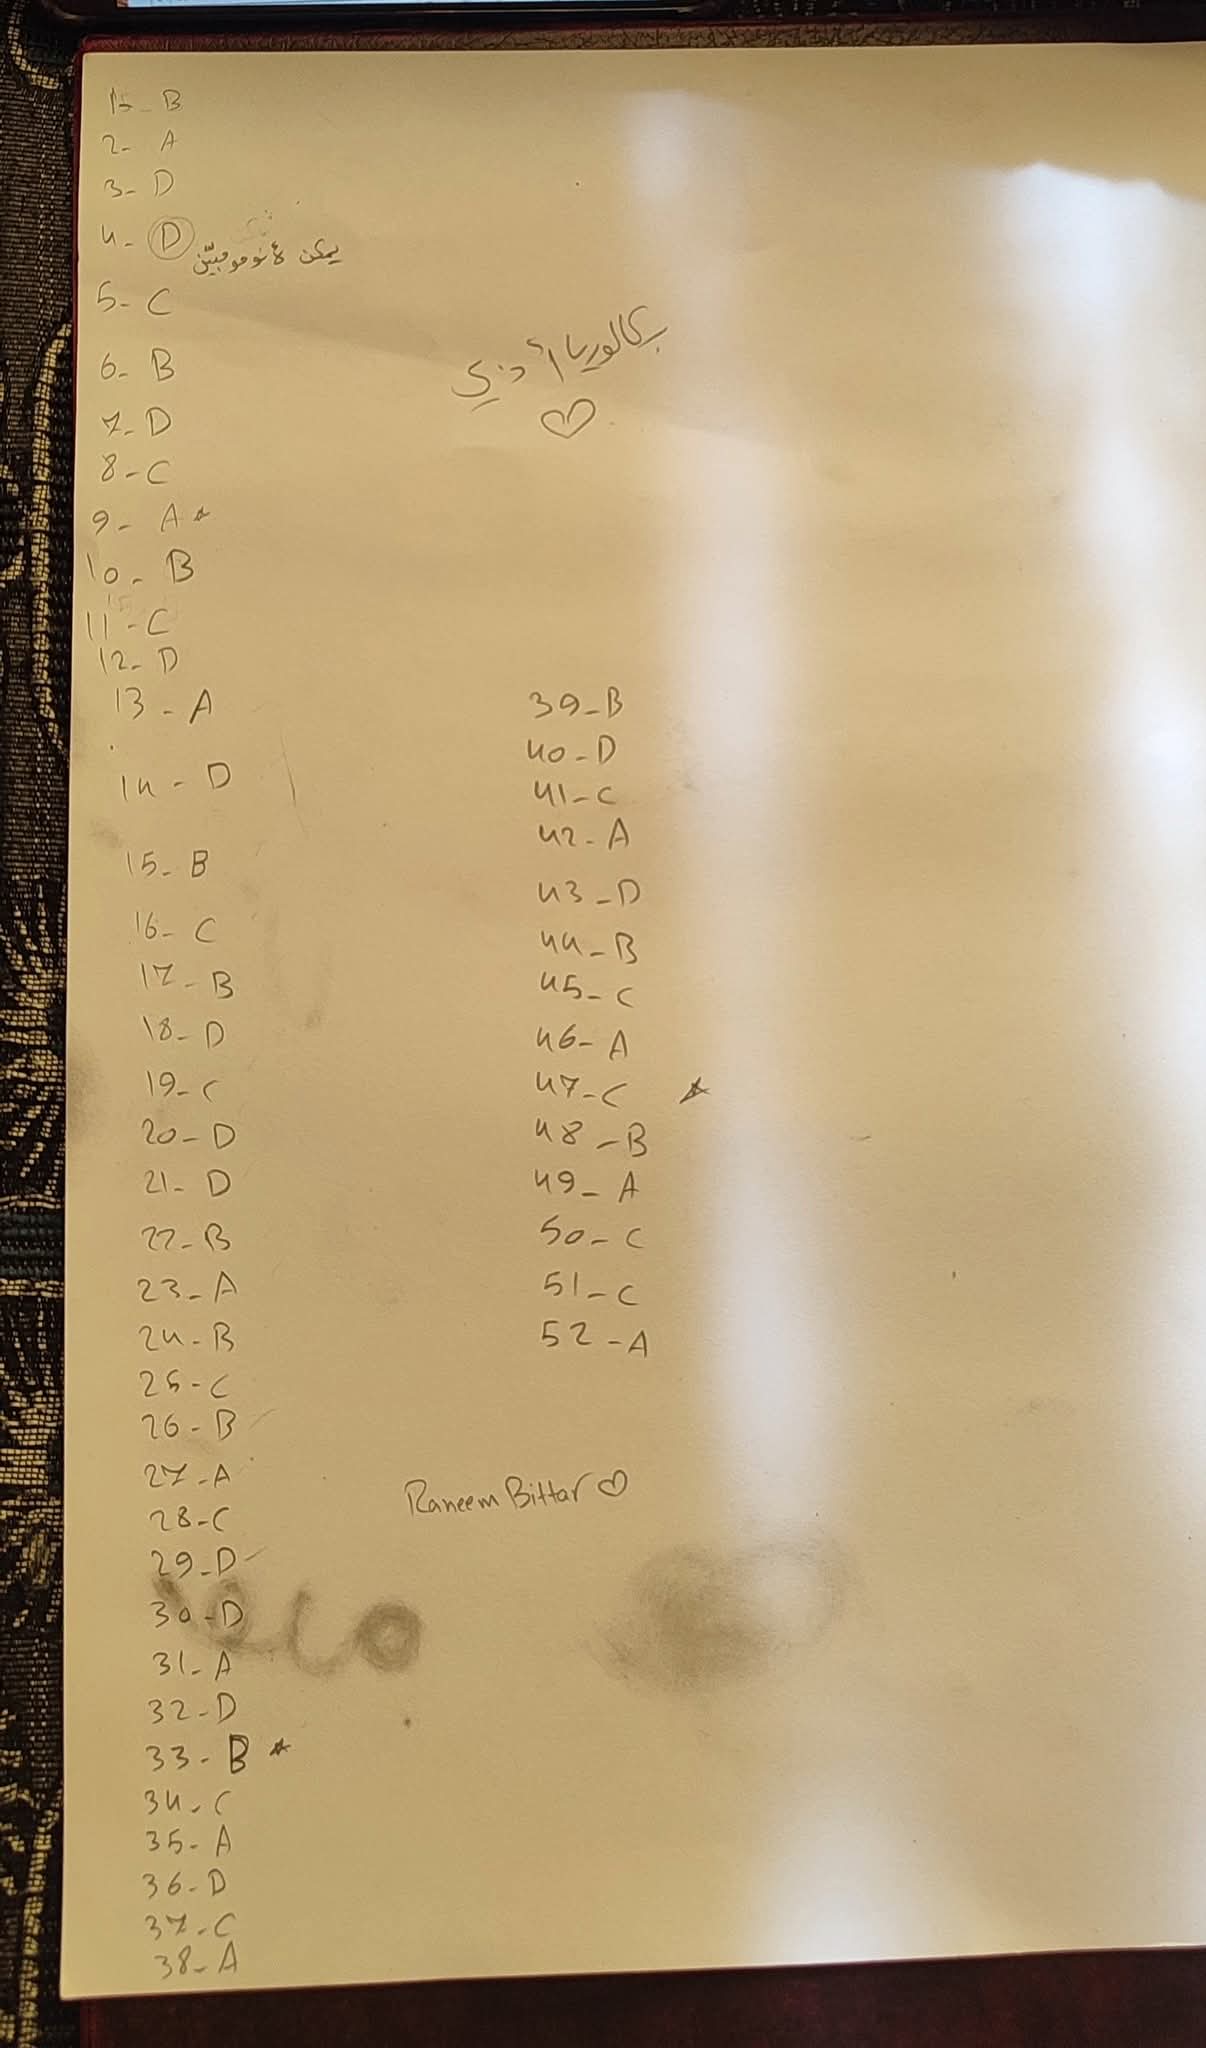 1- B
2- A
3- D
4- D يمكن لأنو مو مبيّن
5- C
6- B
7- D
8- C
9- A
10- B
11- C
12- D
13- A
14- D
15- B
16- C
17- B
18- D
19- C
20- D
21- D
22- B
23- A
24- B
25- C
26- B
27- A
28- C
29- D
30- D
31- A
32- D
33- B
34- C
35- A
36- D
37- C
38- A
بكالوريا
39- B
40- D
41- C
42- A
43- D
44- B
45- C
46- A
47- C
48- B
49- A
50- C
51- C
52- A
Raneem Bittar